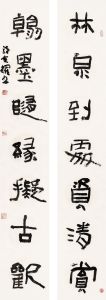 林泉到處資清賞
翰墨隨緣擬古歡